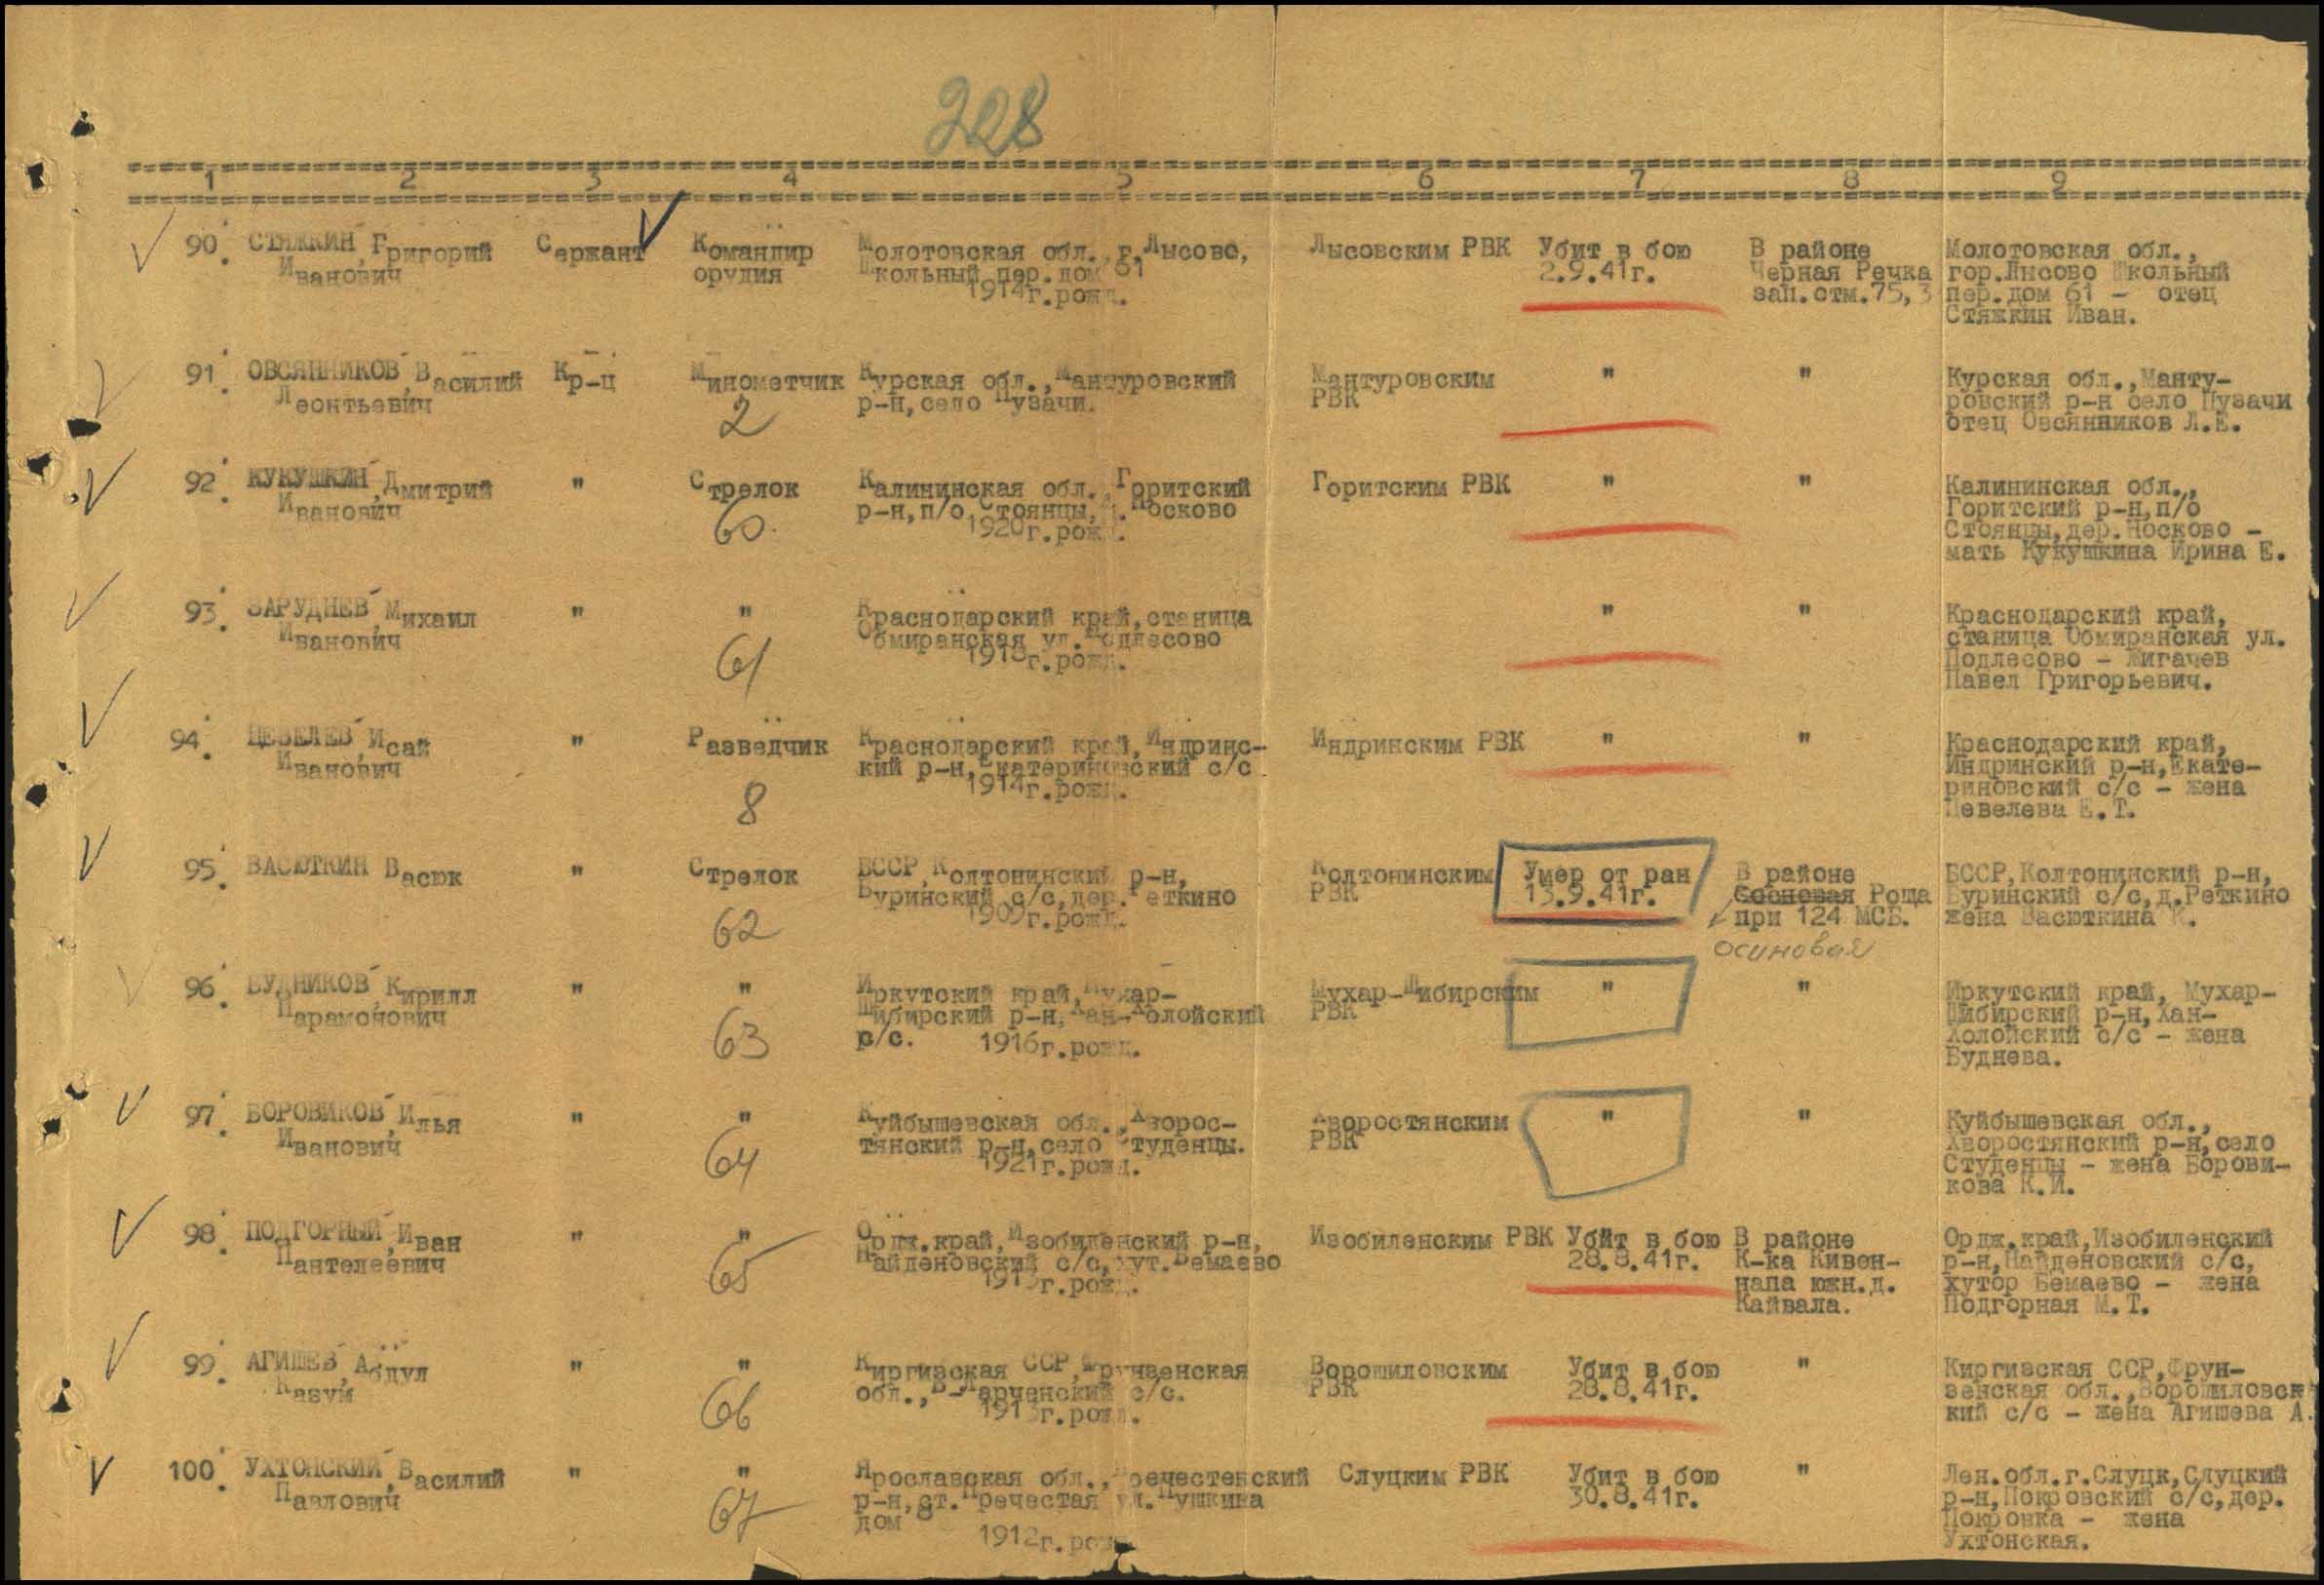 328
1 2 3 4 5 6 7 8 9
90. СТЯЖКИН Григорий Иванович
Сержант
Командир
орудия
Молотовская обл., г.Лысово,
Школьный пер. дом 61
1914г.рожд.
Лысовским РВК
Убит в бою
2.9.41г.
В районе
Черная Речка
зап.отм.75,3
Молотовская обл.,
гор.Лысово Школьный
пер.дом 61 - отец
Стяжкин Иван.
91. ОВСЯННИКОВ Василий
Леонтьевич
Кр-ц
Минометчик
2
Курская обл., Мантуровский
р-н, село Пузачи.
Мантуровским
РВК
"
"
Курская обл., Манту-
ровский р-н село Пузачи
отец Овсянников Л.Е.
92. КУКУШКИН Дмитрий
Иванович
"
Стрелок
60.
Калининская обл., Горитский
р-н, п/о Стоянцы, д. Носково
1920г.рожд.
Горитским РВК
"
"
Калининская обл.,
Горитский р-н, п/о
Стоянцы, дер. Носково -
мать Кукушкина Ирина Е.
93. ЗАРУДНЕВ Михаил
Иванович
"
"
61
Краснодарский край, станица
Обмиранская ул. Подлесово
г.рожд.
"
"
Краснодарский край,
станица Обмиранская ул.
Подлесово - Жигачев
Павел Григорьевич.
94. ЦЕВЕЛЕВ Исай
Иванович
"
Разведчик
8
Краснодарский край, Индринс-
кий р-н, Екатериновский с/с
1914г.рожд.
Индринским РВК
"
"
Краснодарский край,
Индринский р-н, Екате-
риновский с/с - жена
Цевелева Е.Т.
95. ВАСЮТКИН Васюк
"
Стрелок
62
БССР, Колтонинский р-н,
Буринский с/с, дер. Реткино
1909г.рожд.
Колтонинским
РВК
Умер от ран
13.9.41г.
В районе
Сосновая Роща
при 124 МСБ.
осиновая
БССР, Колтонинский р-н,
Буринский с/с, д.Реткино
жена Васюткина К.
96. БУДНИКОВ Кирилл
Парамонович
"
"
63
Иркутский край, Мухар-
Шибирский р-н, Хан-Холойский
с/с. 1916г.рожд.
Мухар-Шибирским
РВК
"
"
Иркутский край, Мухар-
Шибирский р-н, Хан-
Холойский с/с - жена
Буднева.
97. БОРОВИКОВ Илья
Иванович
"
"
64
Куйбышевская обл., Хворос-
тянский р-н, село Студенцы.
1921г.рожд.
Хворостянским
РВК
"
"
Куйбышевская обл.,
Хворостянский р-н, село
Студенцы - жена Борови-
кова К.И.
98. ПОДГОРНЫЙ Иван
Пантелеевич
"
"
65
Ордж.край, Изобиленский р-н,
Найденовский с/с, хут. Бемаево
г.рожд.
Изобиленским РВК
Убит в бою
28.8.41г.
В районе
К-ка Кивен-
напа южн.д.
Кайвала.
Ордж.край, Изобиленский
р-н, Найденовский с/с,
хутор Бемаево - жена
Подгорная М.Т.
99. АГИШЕВ Абдул
Казум
"
"
66
Киргизская ССР, Фрунзенская
обл., с/с.
г.рожд.
Ворошиловским
РВК
Убит в бою
28.8.41г.
"
Киргизская ССР, Фрун-
зенская обл., Ворошиловск
кий с/с - жена Агишева А.
100. УХТОНСКИЙ Василий
Павлович
"
"
67
Ярославская обл., Пречестенский
р-н, ст. Пречестая ул. Пушкина
дом 8
1912г.рожд.
Слуцким РВК
Убит в бою
30.8.41г.
"
Лен.обл.г.Слуцк, Слуцкий
р-н, Покровский с/с, дер.
Покровка - жена
Ухтонская.